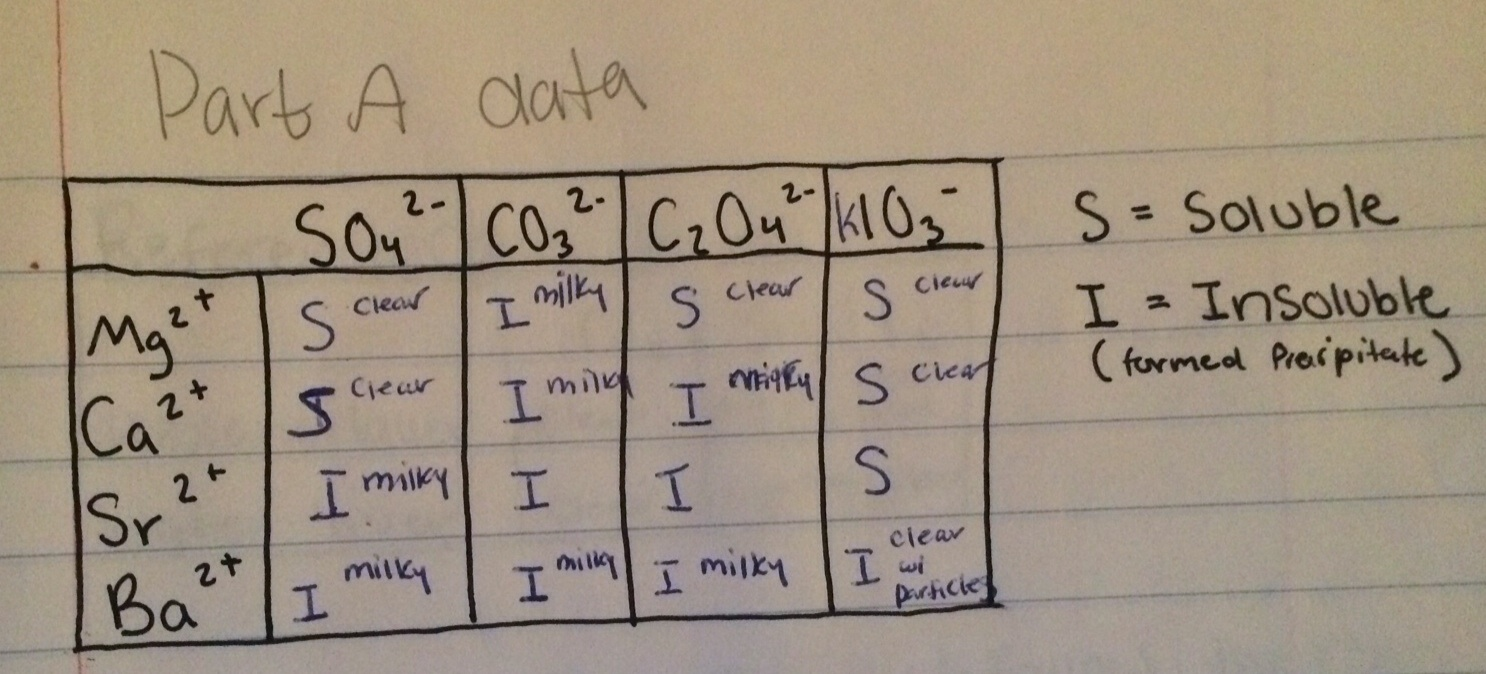 Part A data
SO₄²⁻ CO₃²⁻ C₂O₄²⁻ KIO₃⁻
Mg²⁺ S clear I milky S clear S clear
Ca²⁺ S clear I milky I milky S clear
Sr²⁺ I milky I I S
Ba²⁺ I milky I milky I milky I clear wi particles
S = Soluble
I = Insoluble
(formed Precipitate)